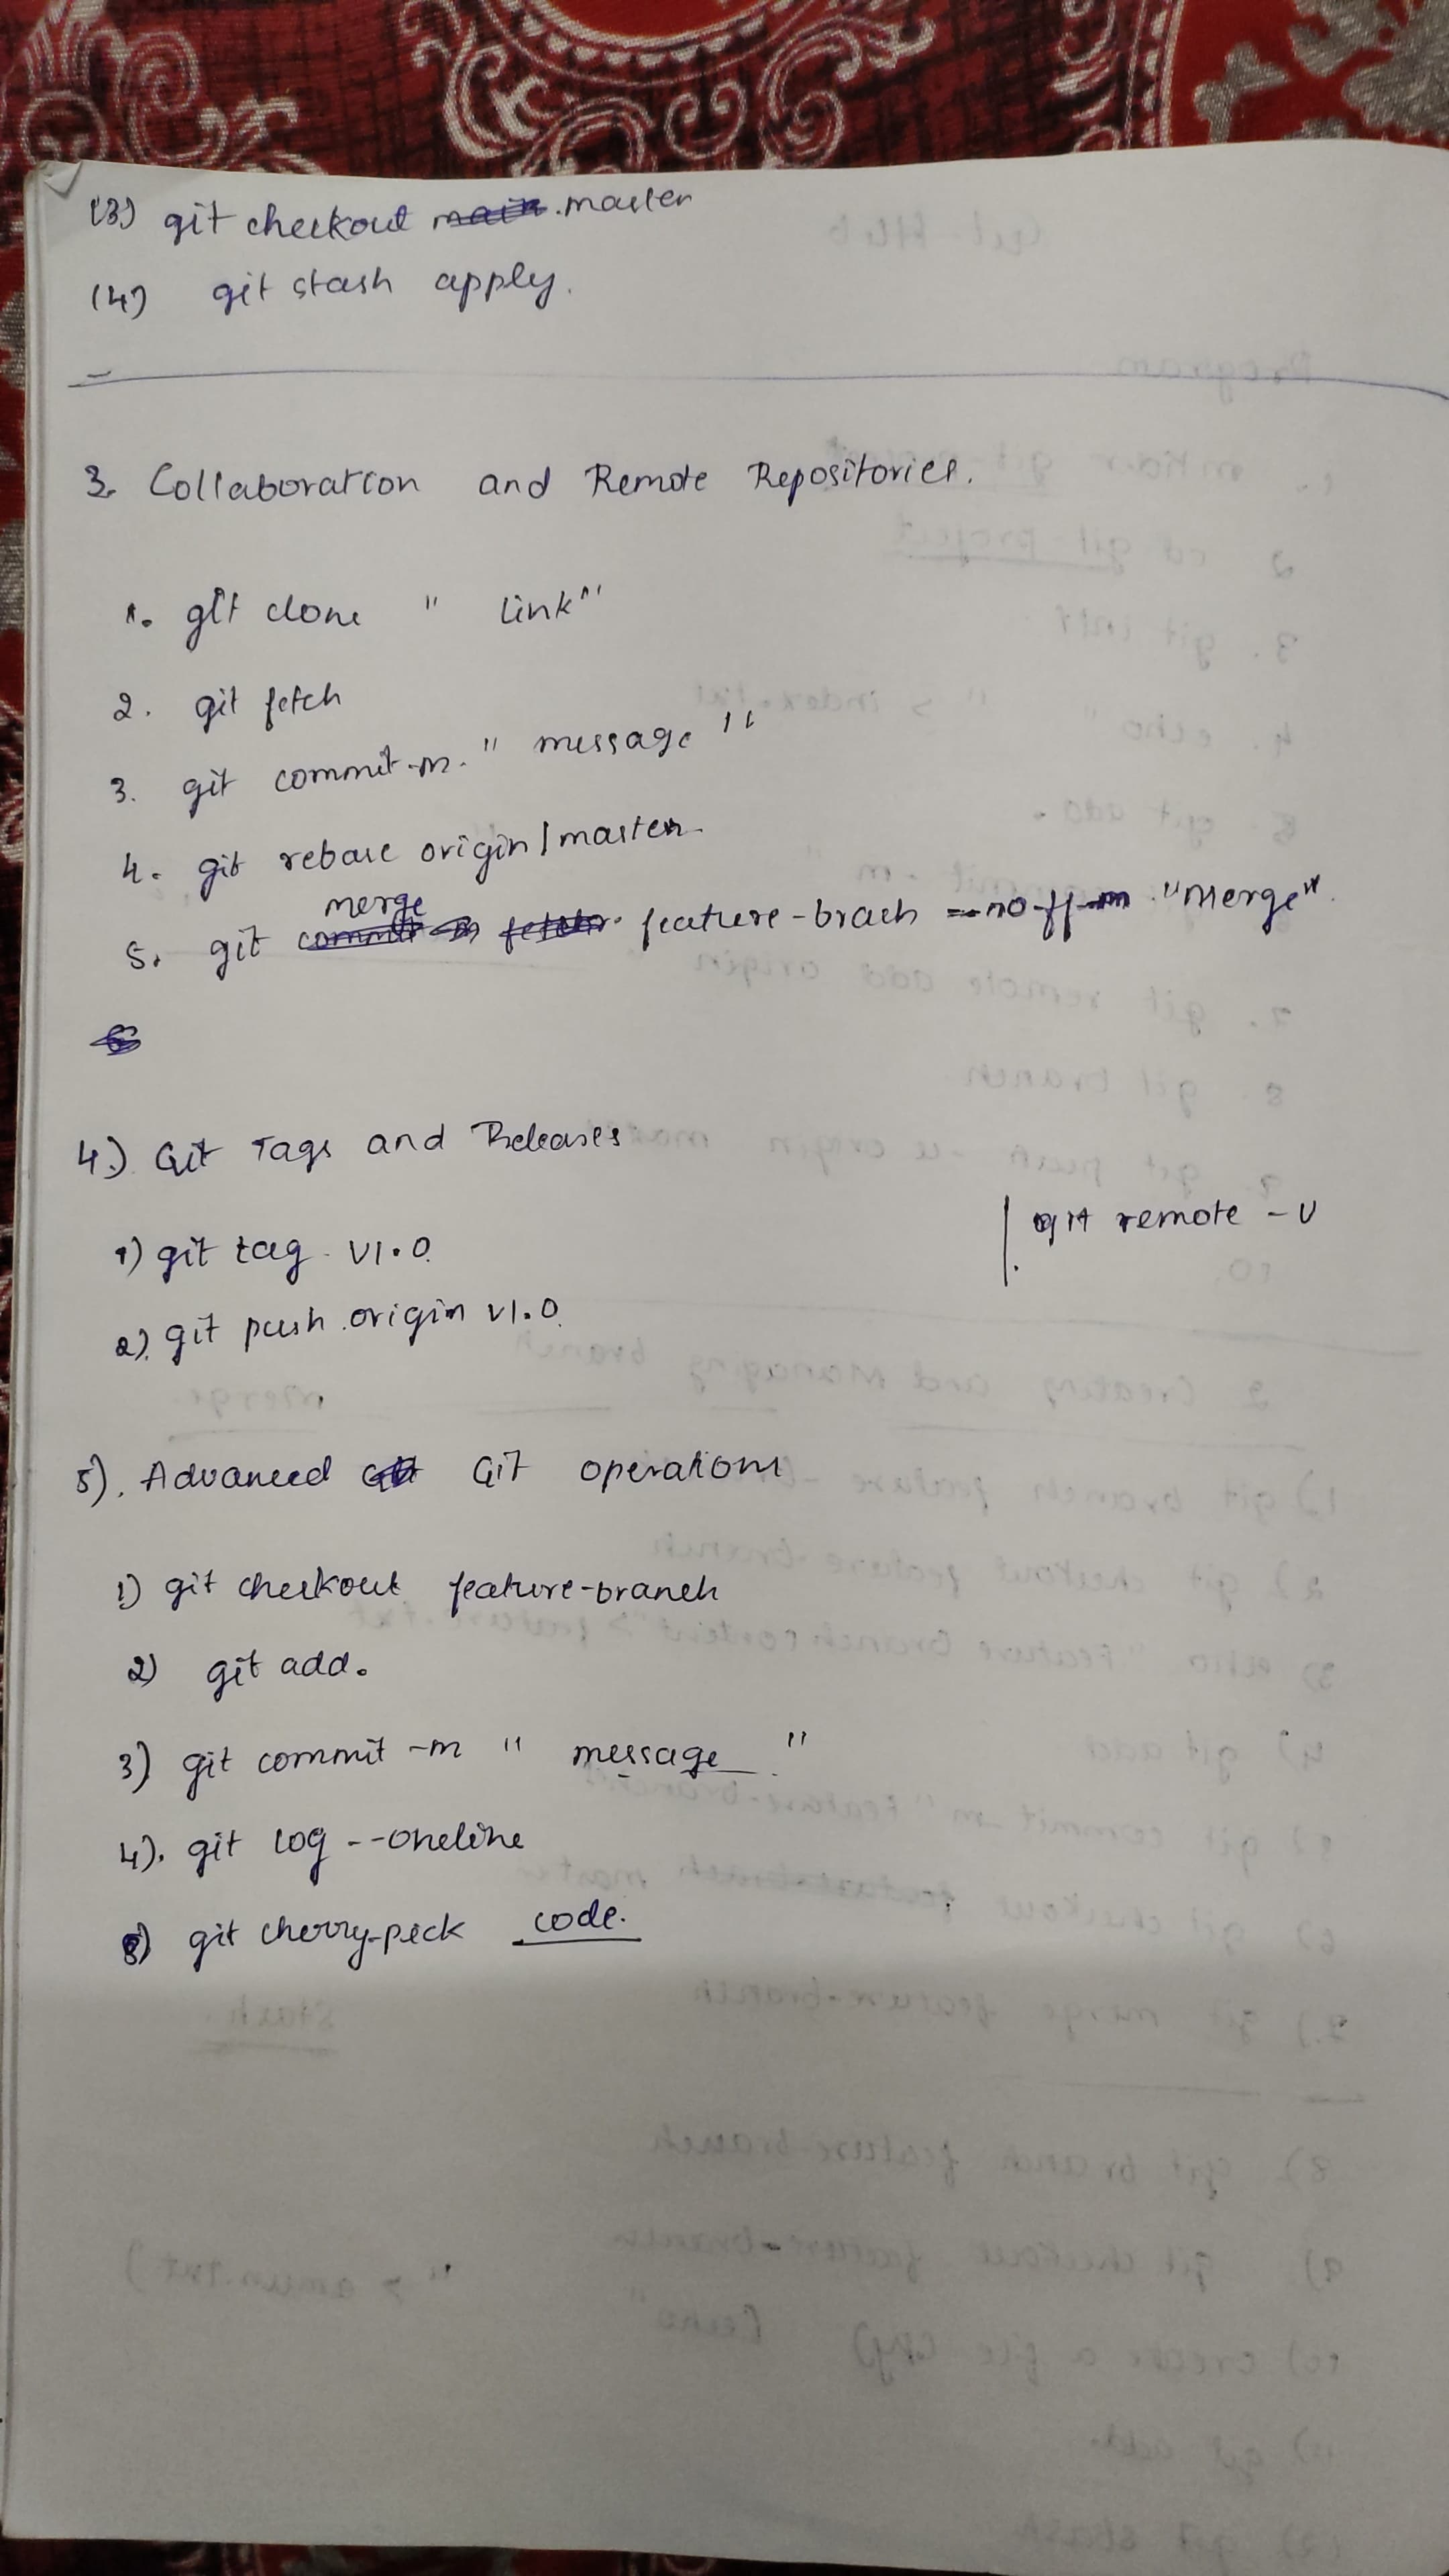 (3) git checkout master
(4) git stash apply.
3. Collaboration and Remote Repositories.
1. git clone " link"
2. git fetch
3. git commit -m. " message "
4. git rebase origin/master.
merge
5. git feature-brach --no-ff -m "Merge".
4.) Git Tags and Releases
git remote -v
1) git tag v1.0
2). git push origin v1.0
5). Advanced Git operations
1) git checkout feature-branch
2) git add.
3) git commit -m " message "
4). git log --oneline
5) git cherry-pick code.